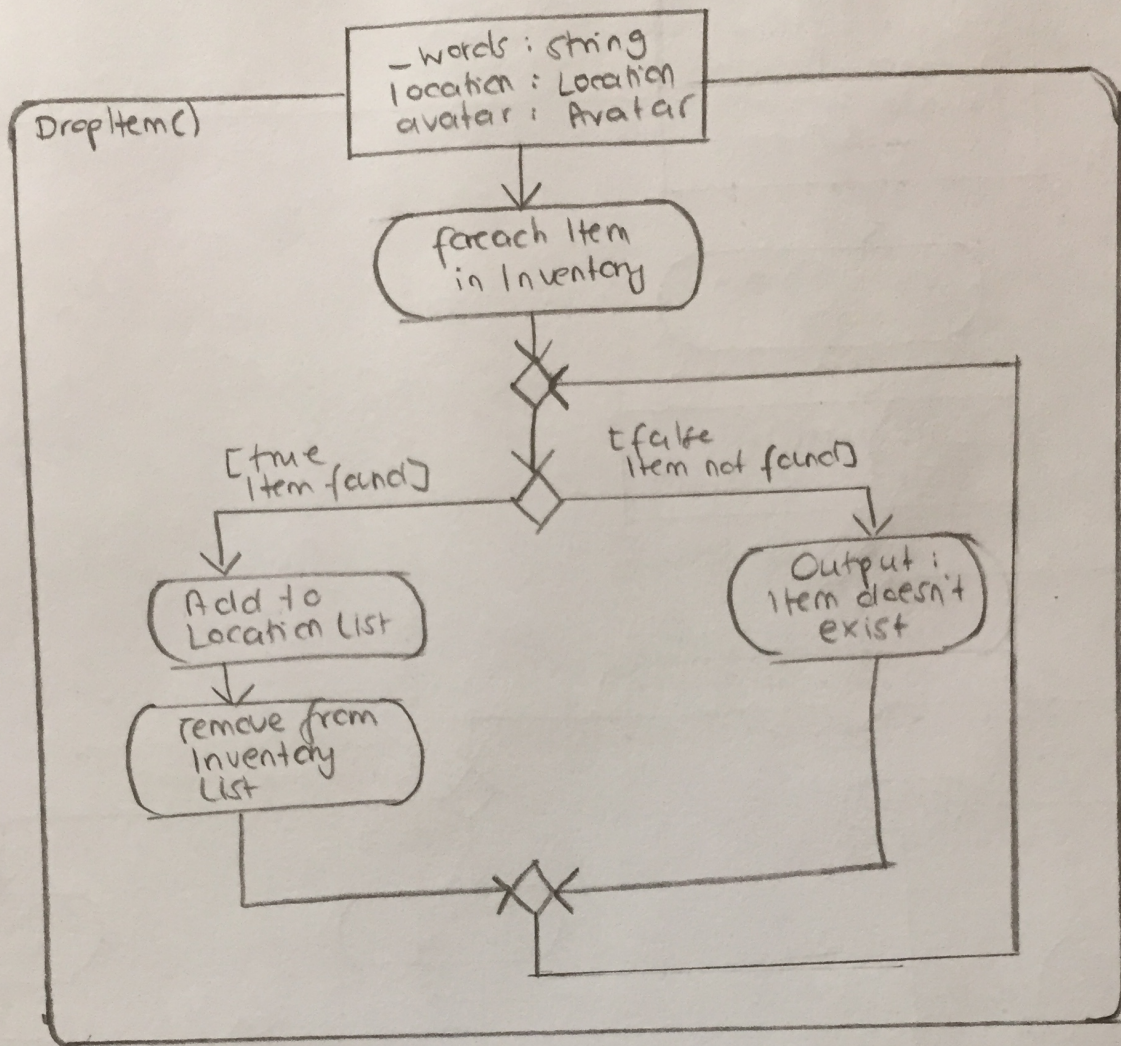 _words : string
location : Location
avatar : Avatar
DropItem()
foreach Item
in Inventory
[true
Item found]
[false
Item not found]
Add to
Location List
Output :
Item doesn't
exist
remove from
Inventory
List